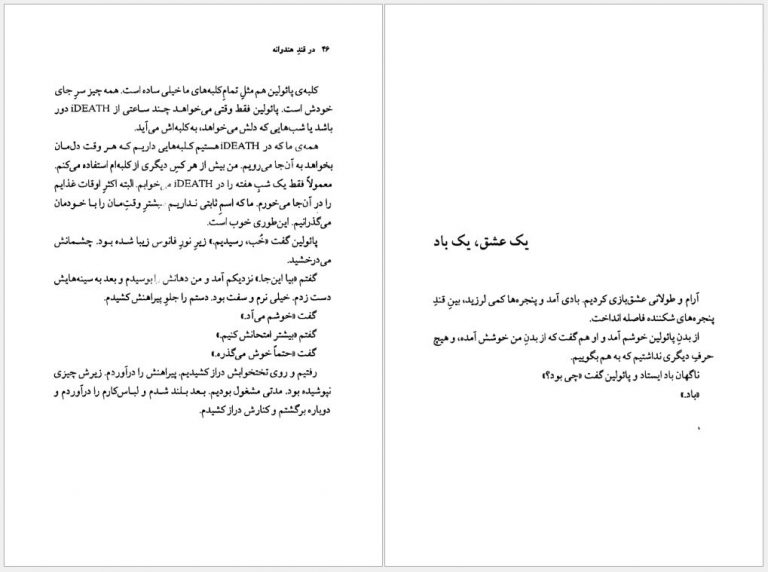 ۴۶ در قندِ هندوانه
کلبه‌ی پائولین هم مثلِ تمامِ کلبه‌های ما خیلی ساده است. همه چیز سرِ جای
خودش است. پائولین فقط وقتی می‌خواهد چند ساعتی از iDEATH دور
باشد یا شب‌هایی که دلش می‌خواهد، به کلبه‌اش می‌آید.
همه‌ی ما که در iDEATH هستیم کلبه‌هایی داریم که هر وقت دل‌مان
بخواهد به آن‌جا می‌رویم. من بیش از هر کسِ دیگری از کلبه‌ام استفاده می‌کنم.
معمولاً فقط یک شبِ هفته را در iDEATH می‌خوابم. البته اکثرِ اوقات غذایم
را در آن‌جا می‌خورم. ما که اسمِ ثابتی نداریم بیشترِ وقتِ‌مان را با خودمان
می‌گذرانیم. این‌طوری خوب است.
پائولین گفت «خُب، رسیدیم.» زیرِ نورِ فانوس زیبا شده بود. چشمانش
می‌درخشید.
گفتم «بیا این‌جا.» نزدیکم آمد و من دهانش را بوسیدم و بعد به سینه‌هایش
دست زدم. خیلی نرم و سفت بود. دستم را جلوِ پیراهنش کشیدم.
گفت «خوشم می‌آد.»
گفتم «بیشتر امتحانش کنیم.»
گفت «حتماً خوش می‌گذره.»
رفتیم و روی تختخوابش دراز کشیدیم. پیراهنش را درآوردم. زیرش چیزی
نپوشیده بود. مدتی مشغول بودیم. بعد بلند شدم و لباسِ‌کارم را درآوردم و
دوباره برگشتم و کنارش دراز کشیدم.
یک عشق، یک باد
آرام و طولانی عشق‌بازی کردیم. بادی آمد و پنجره‌ها کمی لرزید، بینِ قندِ
پنجره‌های شکننده فاصله انداخت.
از بدنِ پائولین خوشم آمد و او هم گفت که از بدنِ من خوشش آمده، و هیچ
حرفِ دیگری نداشتیم که به هم بگوییم.
ناگهان باد ایستاد و پائولین گفت «چی بود؟»
«باد.»